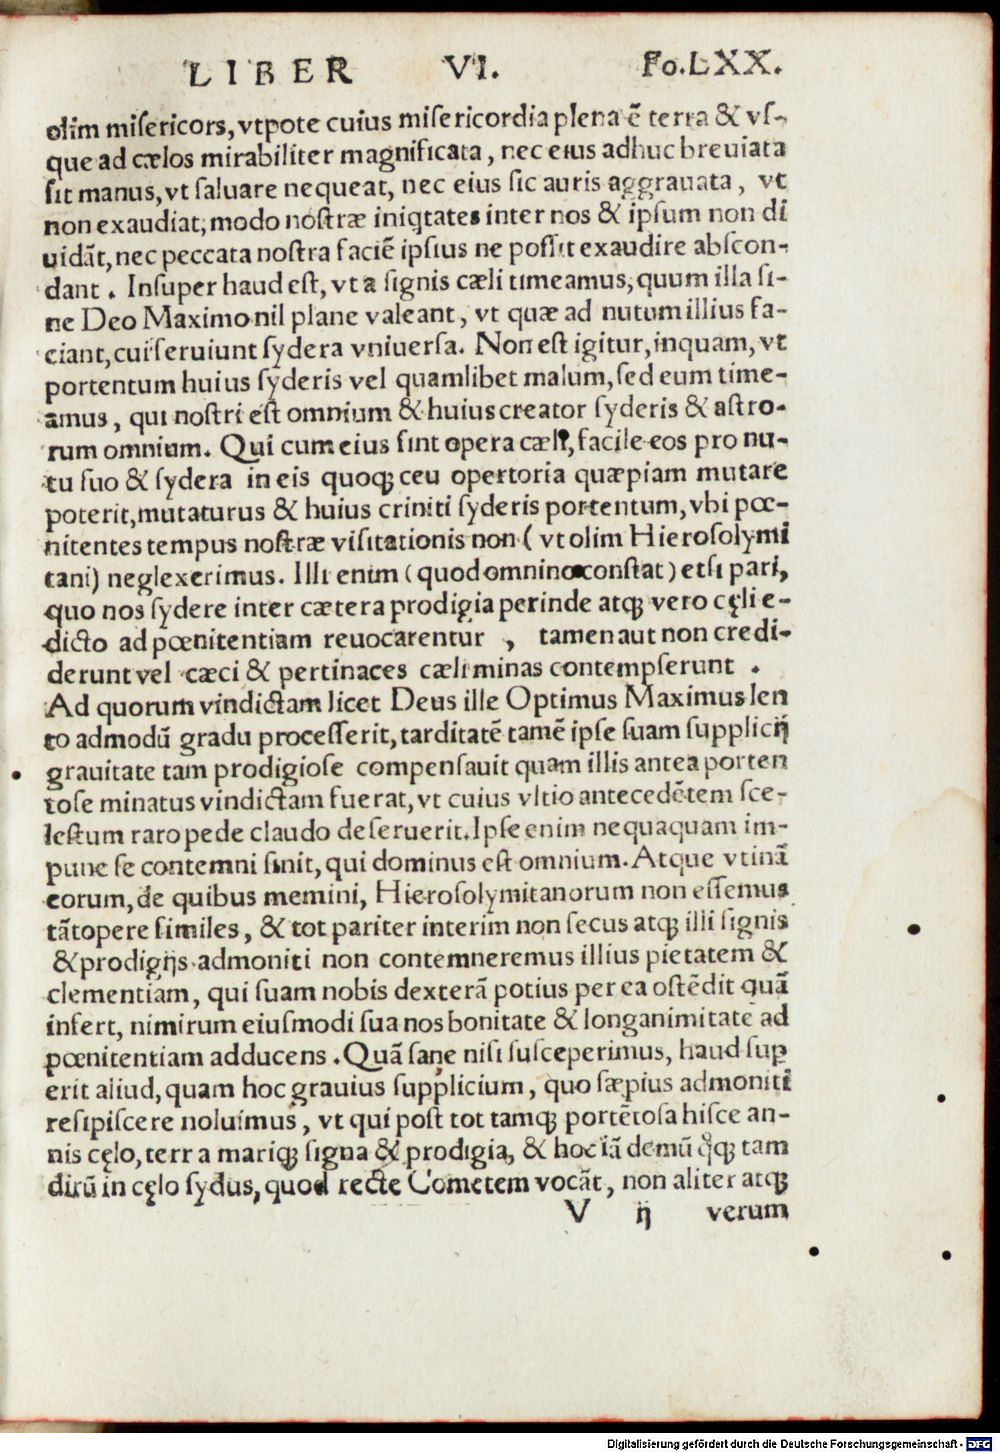 LIBER VI. Fo.LXX.
olim misericors, vtpote cuius misericordia plena ē terra & vs-
que ad cælos mirabiliter magnificata, nec eius adhuc breuiata
sit manus, vt saluare nequeat, nec eius sic auris aggrauata, vt
non exaudiat, modo nostræ iniq̇tates inter nos & ipsum non di
uidāt, nec peccata nostra faciē ipsius ne possit exaudire abscon-
dant. Insuper haud est, vt a signis cæli timeamus, quum illa si-
ne Deo Maximo nil plane valeant, vt quæ ad nutum illius fa-
ciant, cui seruiunt sydera vniuersa. Non est igitur, inquam, vt
portentum huius syderis vel quamlibet malum, sed eum time-
amus, qui nostri est omnium & huius creator syderis & astro-
rum omnium. Qui cum eius sint opera cæli, facile eos pro nu-
tu suo & sydera in eis quoqꝫ ceu opertoria quæpiam mutare
poterit, mutaturus & huius criniti syderis portentum, vbi pœ-
nitentes tempus nostræ visitationis non (vt olim Hierosolymi
tani) neglexerimus. Illi enim (quod omnino constat) etsi pari,
quo nos sydere inter cætera prodigia perinde atqꝫ vero cęli e-
dicto ad pœnitentiam reuocarentur, tamen aut non credi-
derunt vel cæci & pertinaces cæli minas contempserunt.
Ad quorum vindictam licet Deus ille Optimus Maximus len
to admodū gradu processerit, tarditatē tamē ipse suam supplicij
grauitate tam prodigiose compensauit quam illis antea porten
tose minatus vindictam fuerat, vt cuius vltio antecedētem sce-
lestum raro pede claudo deseruerit. Ipse enim nequaquam im-
pune se contemni sinit, qui dominus est omnium. Atque vtinā
eorum, de quibus memini, Hierosolymitanorum non essemus
tātopere similes, & tot pariter interim non secus atqꝫ illi signis
& prodigijs admoniti non contemneremus illius pietatem &
clementiam, qui suam nobis dexterā potius per ea ostēdit quā
infert, nimirum eiusmodi sua nos bonitate & longanimitate ad
pœnitentiam adducens. Quā sane nisi susceperimus, haud sup
erit aliud, quam hoc grauius supplicium, quo sæpius admoniti
resipiscere noluimus, vt qui post tot tamqꝫ portētosa hisce an-
nis cęlo, terra mariqꝫ signa & prodigia, & hoc iā demū q̊qꝫ tam
dirū in cęlo sydus, quod recte Cometem vocāt, non aliter atqꝫ
V ij verum
Digitalisierung gefördert durch die Deutsche Forschungsgemeinschaft - DFG